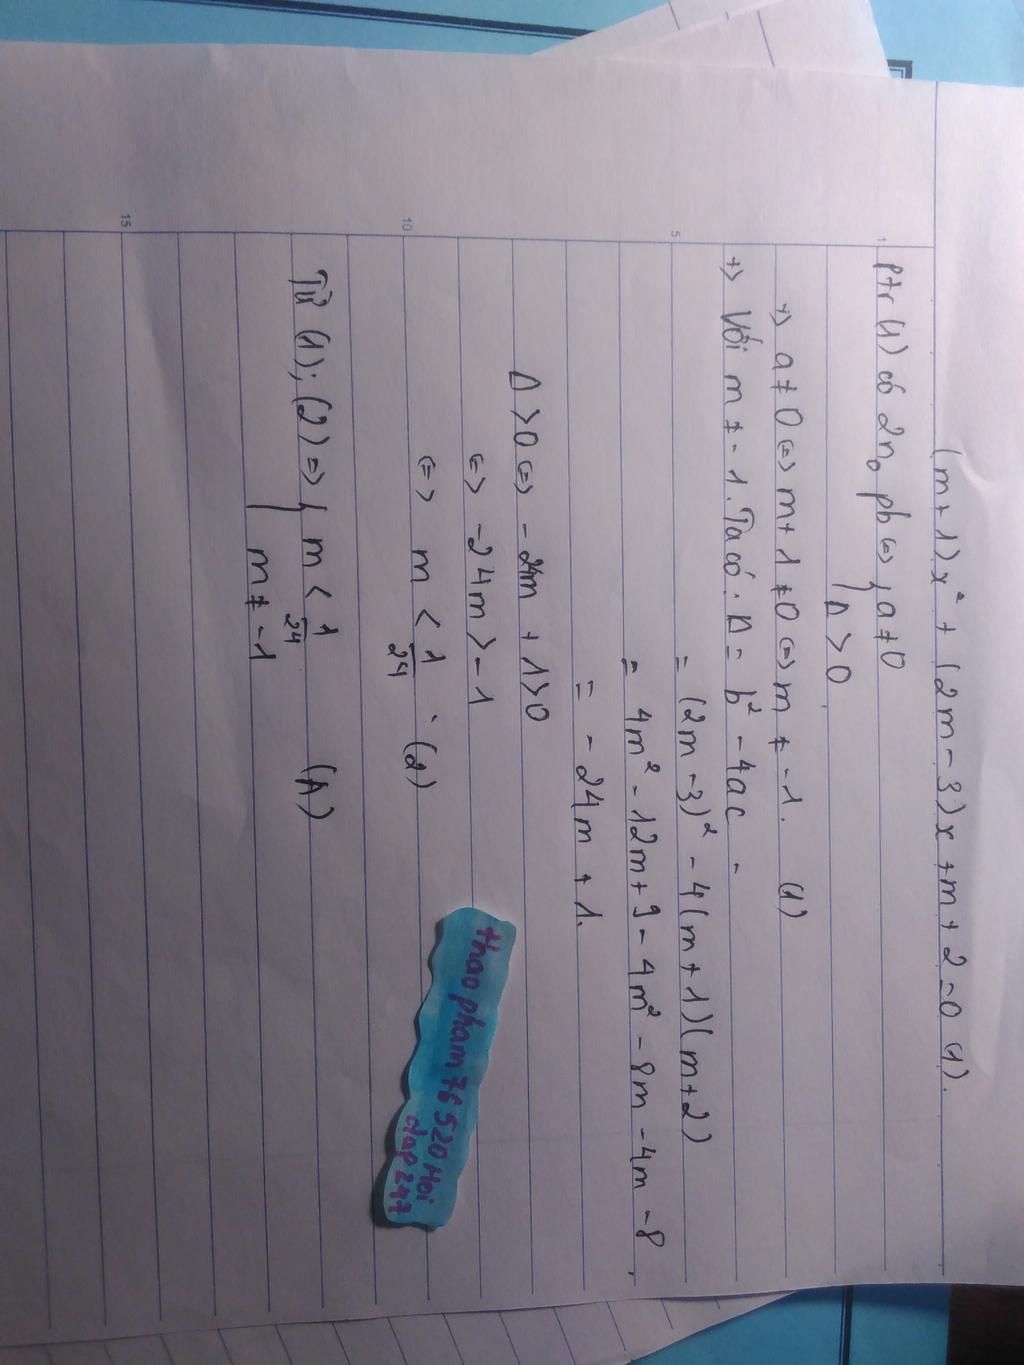 (m+1)x² + (2m-3)x + m + 2 = 0 (1).
1
ptr (1) có 2n₀ pb <=> { a ≠ 0
Δ > 0
+> a ≠ 0 <=> m + 1 ≠ 0 <=> m ≠ -1. (1)
+> Với m ≠ -1. Ta có: Δ = b² - 4ac
5
= (2m-3)² - 4(m+1)(m+2)
= 4m² - 12m + 9 - 4m² - 8m - 4m - 8
= -24m + 1.
Δ > 0 <=> -24m + 1 > 0
<=> -24m > -1
10
<=> m < 1/24 . (2)
Từ (1); (2) => { m < 1/24 (A)
m ≠ -1
15
thao pham 76 520 Hoi
dap 247